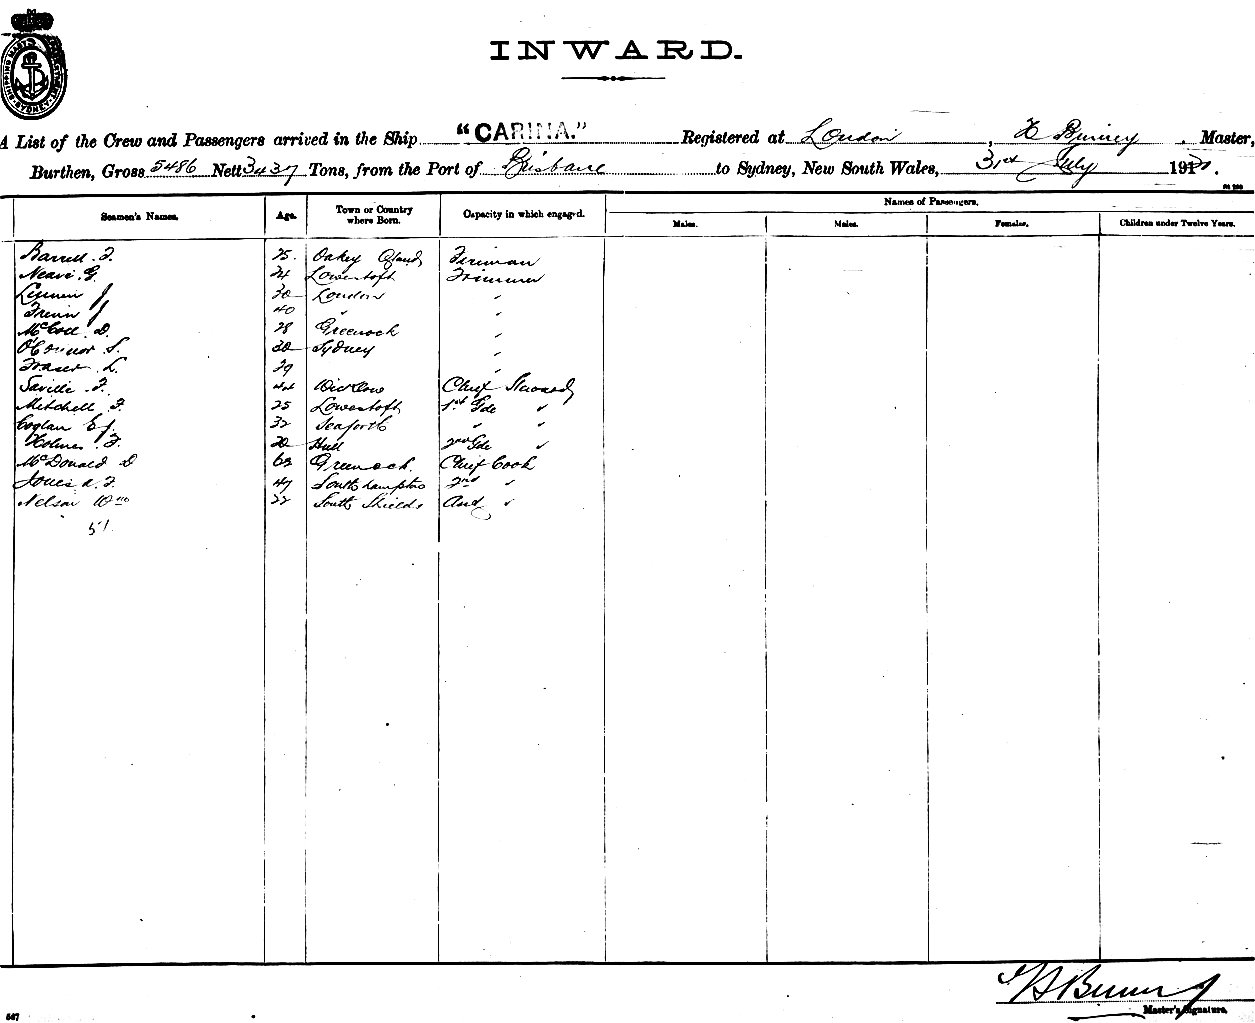 INWARD.
A List of the Crew and Passengers arrived in the Ship "CARINA." Registered at London, H Binney. Master,
Burthen, Gross 5486 Nett 3437 Tons, from the Port of Brisbane to Sydney, New South Wales, 31st July 19
Seamen's Names. Age. Town or Country where Born. Capacity in which engaged. Names of Passengers.
Males. Males. Females. Children under Twelve Years.
Barrell F. 25. Oakey Qland Fireman
Neave G. 24 Lowestoft Trimmer
J 30 London "
J 40 " "
McColl D. 28 Greenock "
O'Connor S. 30 Sydney "
Fraser L. 29 "
Saville F. 44 Wicklow Chief Steward
Mitchell F. 25 Lowestoft 1st Gde "
Coglan E J. 32 Seaforth " "
Holmes F. 20 Hull 2nd Gde "
McDonald D 62 Greenock. Chief Cook
Jones A. F. 47 Southampton 2nd "
Nelson Wm 22 South Shields And "
51
Master's Signature.
567